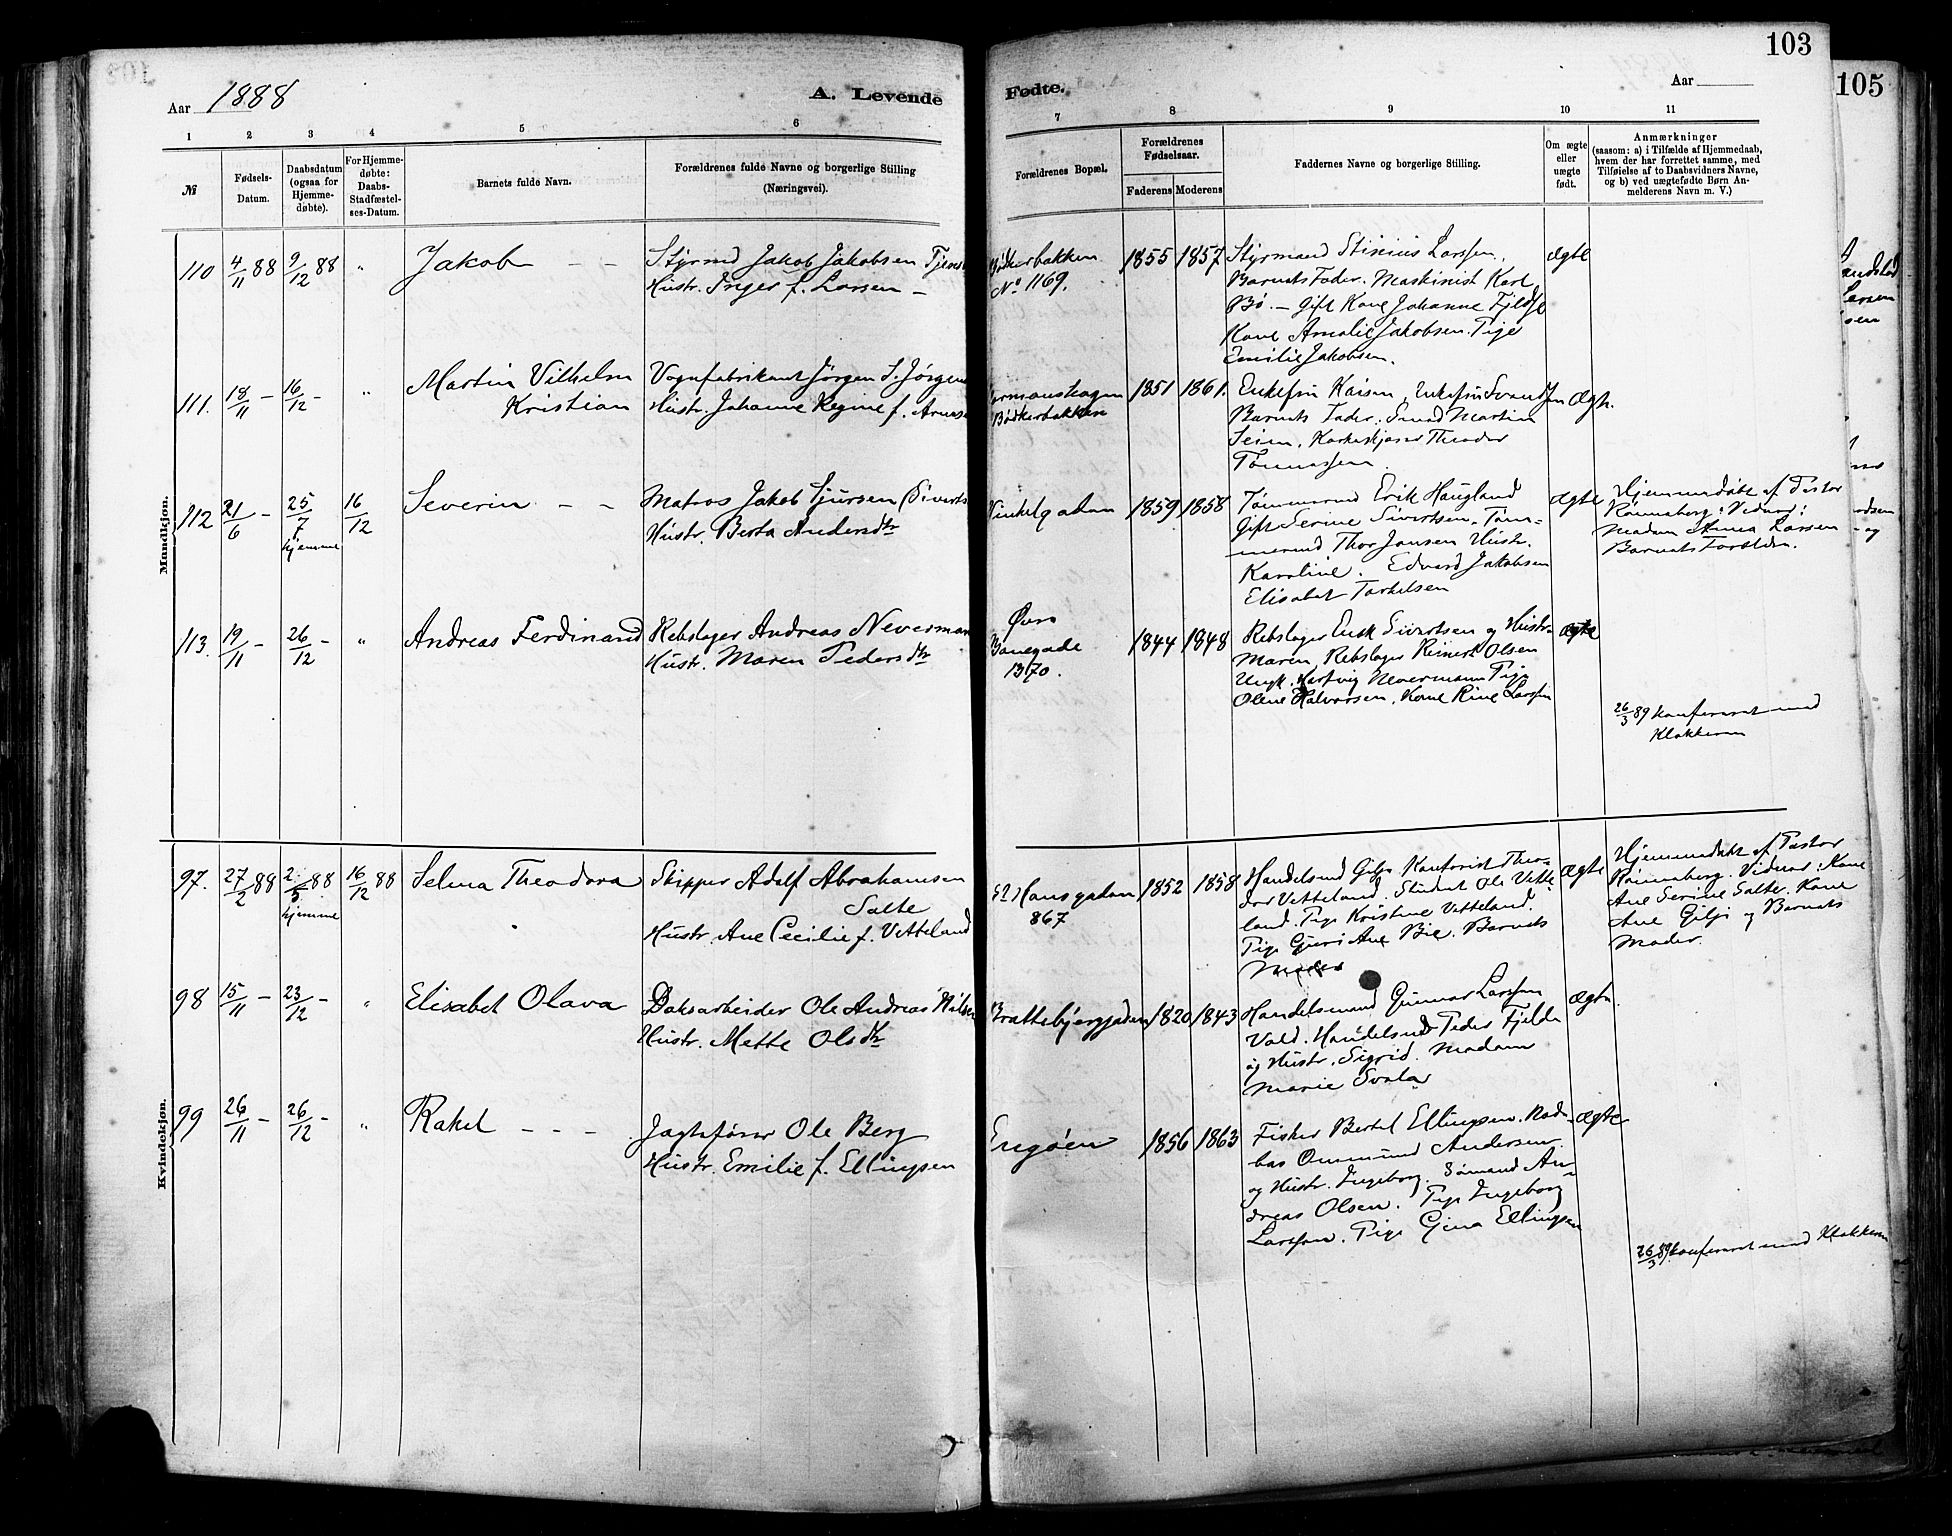 103
105
Aar 1888
A. Levende
Fødte.
Aar
1 2 3 4 5 6 7 8 9 10 11
№
Fødsels-
Datum.
Daabsdatum
(ogsaa for
Hjemme-
døbte).
For Hjemme-
døbte:
Daabs-
Stadfæstel-
ses-Datum.
Barnets fulde Navn.
Forældrenes fulde Navne og borgerlige Stilling
(Næringsvei).
Forældrenes Bopæl.
Forældrenes
Fødselsaar.
Faderens Moderens
Faddernes Navne og borgerlige Stilling.
Om ægte
eller
uægte
født.
Anmærkninger
(saasom: a) i Tilfælde af Hjemmedaab,
hvem der har forrettet samme, med
Tilføielse af to Daabsvidners Navne,
og b) ved uægtefødte Børn An-
melderens Navn m. V.)
Mandkjøn.
110 4/11 88 9/12 88 "
Jakob - -
Styrmd Jakob Jakobsen
Hustr. Inger f. Larsen -
Bødkerbakken
No 1169.
1855 1857
Styrmand Stinius Larsen,
Barnets Fader. Maskinist Karl
Bø. - Gift Kone Johanne
Kone Amalie Jakobsen. Pige
Emilie Jakobsen.
ægte
111. 18/11 - 16/12 - "
Martin Vilhelm
Kristian
Vognfabrikant Jörgen S. Jörgens
Hustr. Johanne Regine f. Arnese
Bødkerbakken
1851 1861.
Enkefru Kaisen, Enkefru
Barnets Fader. Smed Martin
Seim. Theodor
Tønnassen.
Ægte.
112 21/6 - 25/7 hjemme 16/12
Severin - -
Matros Jakob Sjursen (Siverts
Hustr. Berta Andersdtr
Vinkelgaden
1859 1858
Tømmermd Erik Haugland
Gift Serine Sivertsen. Tøm-
mermd Thor Jansen Hustr.
Karoline. Edvard Jakobsen
Elisabet Torkelsen
ægte
Hjemmedöbt af Pastor
Rönneberg. Vidner:
Madam Larsen
Barnets Forældre.
113. 19/11 - 26/12 - "
Andreas Ferdinand
Rebslager Andreas Neverman
Hustr. Maren Pedersdtr
Øvre
Banegade
1370.
1844 1848
Rebslager Enok Sivertsen og Hustr.
Maren, Rebslager Reinert Olsen
Ungk. Hartvig Nevermann Pige
Olene Halvorsen, Kone Rine Larsen
ægte
26/3 89 konfereret med
Klokkeren
Kvindekjøn.
97. 27/2 88 2/5 88 hjemme 16/12 88
Selma Theodora
Skipper Adolf Abrahamsen
Salte
Hustr. Ane Cecilie f. Vetteland
St Hansgaden
867
1852 1858
Handelsmd Gilje Kontorist Theo-
dor Vetteland. Student Ole Vette
land. Pige Kristine Vetteland.
Pige Guri Ane Bie. Barnets
Moder
Ægte
Hjemmedøbt af Pastor
Rönneberg. Vidner: Kone
Ane Serine Salte. Kone
Ane Gilje og Barnets
Moder.
98 15/11 - 23/12 - "
Elisabet Olava
Daksarbeider Ole Andreas Nilsen
Hustr. Mette Olsdtr
Brattebjerggaden
1820 1843
Handelsmand Gunnar Larsen
Vold. Handelsmd Peder Fjelde
og Hustr. Sigrid. Madam
Marie Svela
Ægte.
99 26/11 - 26/12 - "
Rakel - - -
Jagtefører Ole Berg
Hustr. Emilie f. Ellingsen
Engöen
1856 1863
Fisker Bertel Ellingsen.
Ommund Andersen
og Hustr. Ingeborg. Sömand An-
dreas Olsen. Pige Ingeborg
Larsen. Pige Gina Ellingsen
Ægte
26/3 89 konfereret med Klokkeren